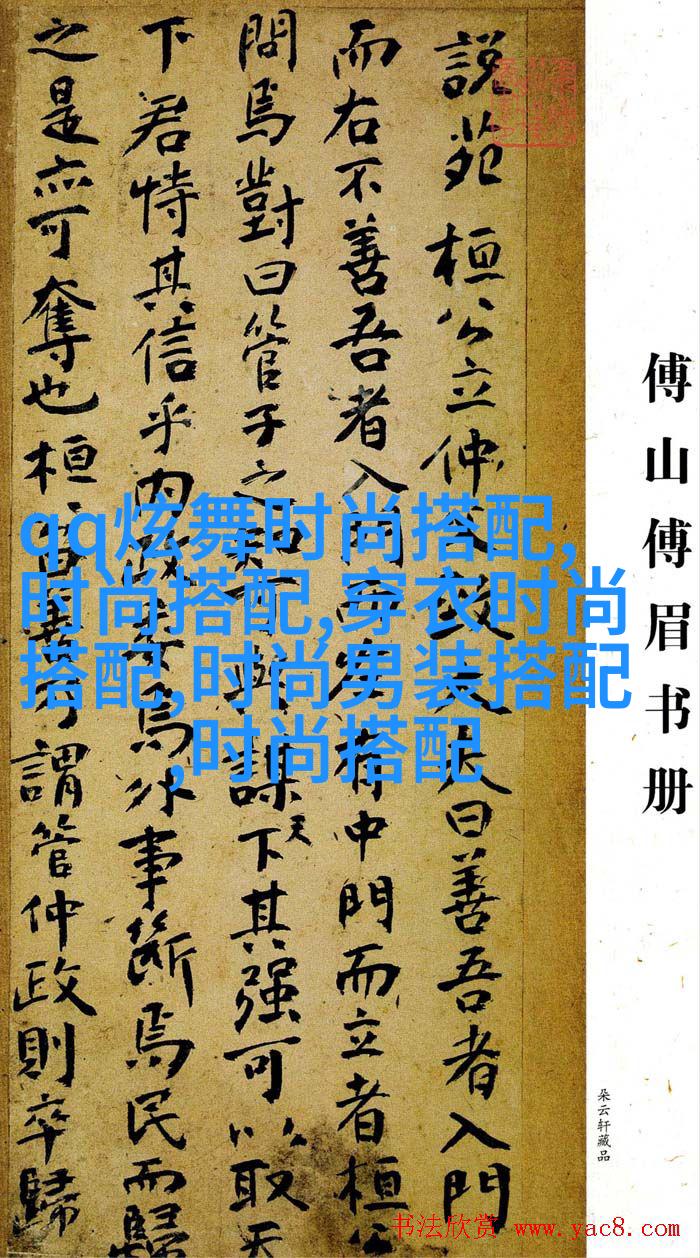 説苑 桓公立仲父致大夫曰善吾者入門
而右不善吾者入門而左有中門而立者桓公
問焉對曰管子之知可與謀天下其强可以取天
下君恃其信乎内政委焉外事斷焉民而歸
之是亦可奪也桓公曰善乃謂管仲政則卒歸
qq炫舞时尚搭配,
时尚搭配,穿衣时尚
搭配,时尚男装搭配
,时尚搭配
傅山傅眉书册
朵云轩藏品
书法欣赏 www.yac8.com